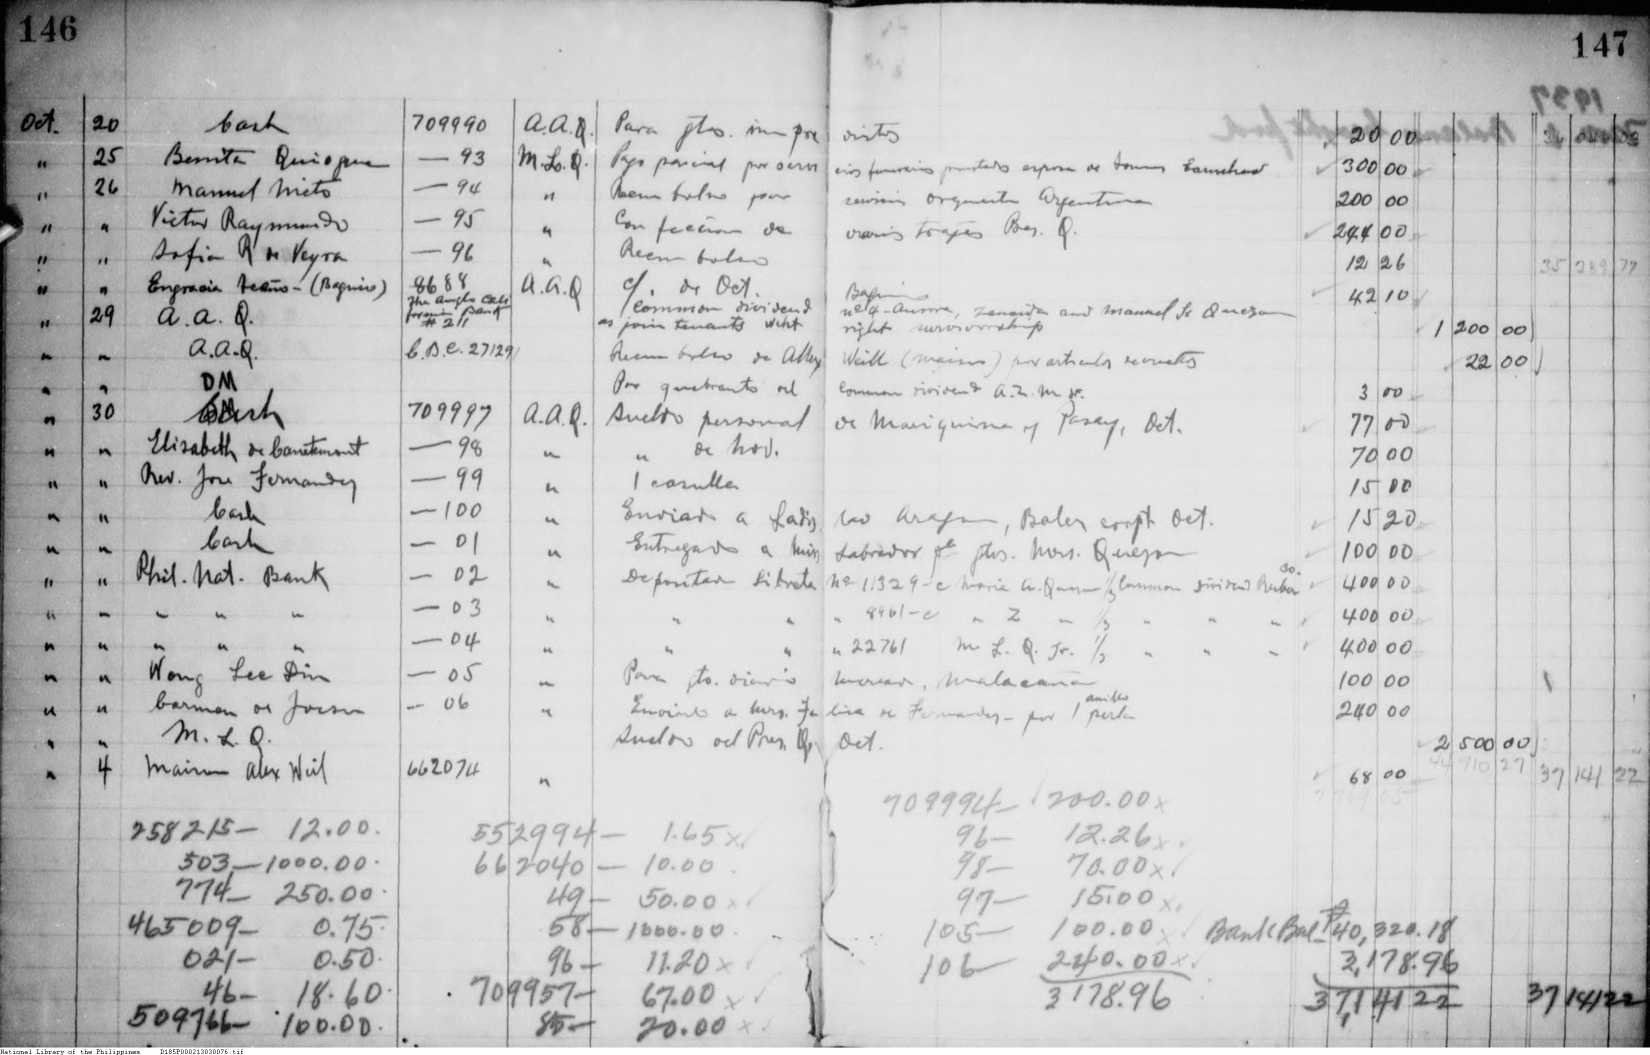 146
147
1937
Oct. 20 Cash 709990 A.A.Q. Para gtos. imprevistos 20 00
" 25 Benita Quiogue — 93 M.L.Q. Pago parcial por servicios funerarios prestados esposa de Tomas 300 00
" 26 Manuel Nieto — 94 " Reembolso por servicios orquesta Argentina 200 00
" " Victor Raymundo — 95 " Confeccion de varios trajes Pres. Q. 244 00
" " Sofia R de Veyra — 96 " Reembolso 12 26
35 289 77
" " Engracia — (Baguio) 8688 A.A.Q c/. de Oct. Baguio 42 10
" 29 A. A. Q. The Anglo Cal. Bank # 211 Common dividend Nº 4 - Aurora, Zenaida and Manuel L. Quezon
as join tenants with right survivorship 1 200 00
" " A.A.Q. C.B.C. 27129 Reembolso de Alex Weill (Maison) por articulos 22 00
" " DM Por quebranto del common dividend 3 00
" 30 Cash 709997 A.A.Q. Sueldo personal de Mariquina y Pasay, Oct. 77 00
" " Elizabeth de Cantemont — 98 " " de Nov. 70 00
" " Rev. Jose Fernandez — 99 " 1 casulla 15 00
" " Cash — 100 " Enviado a Aragon, Baler Oct. 15 20
" " Cash — 01 " Entregado a Miss Labrador gtos. Mrs. Quezon 100 00
" " Phil. Nat. Bank — 02 " Depositado Libreta Nº 11329-c Maria A. Quezon 1/3 Common dividend 400 00
" " " " " — 03 " " " " 8961-c " Z " 1/3 " " " 400 00
" " " " " — 04 " " " " 22761 M. L. Q. Jr. 1/3 " " " 400 00
" " Wong Lee Din — 05 " Para gto. diario mercado, Malacañan 100 00
" " Carmen de — 06 " Enviado a Mrs. de Fernandez - por 1 anillo perla 240 00
" " M. L. Q. Sueldo del Pres. Q. Oct. 2 500 00
44 910 27
" 4 Maison Alex Weil 662074 " 68 00 37 141 22
258215— 12.00
503— 1000.00
774— 250.00
465009— 0.75
021— 0.50
46— 18.60
509766— 100.00
552994— 1.65 x
662040— 10.00
49— 50.00 x
58— 1000.00
96— 11.20 x
709957— 67.00 x
85— 20.00 x
709994— 200.00 x
96— 12.26 x
98— 70.00 x
97— 15.00 x
105— 100.00 x
106— 240.00 x
3178.96
Bank Bal— ₱40,320.18
3,178.96
37,141 22 37 141 22
National Library of the Philippines D185P000213030076.tif